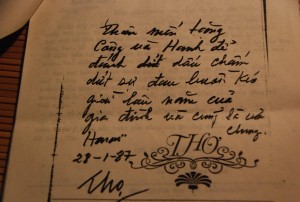 Thân mến tặng
Công và Hạnh để
đánh dất dấu chấm
dứt sự đau buồn kéo
dài lâu năm của
gia đình và cũng là của
chung.
Hanoi
28-1-87
THỌ
Thọ